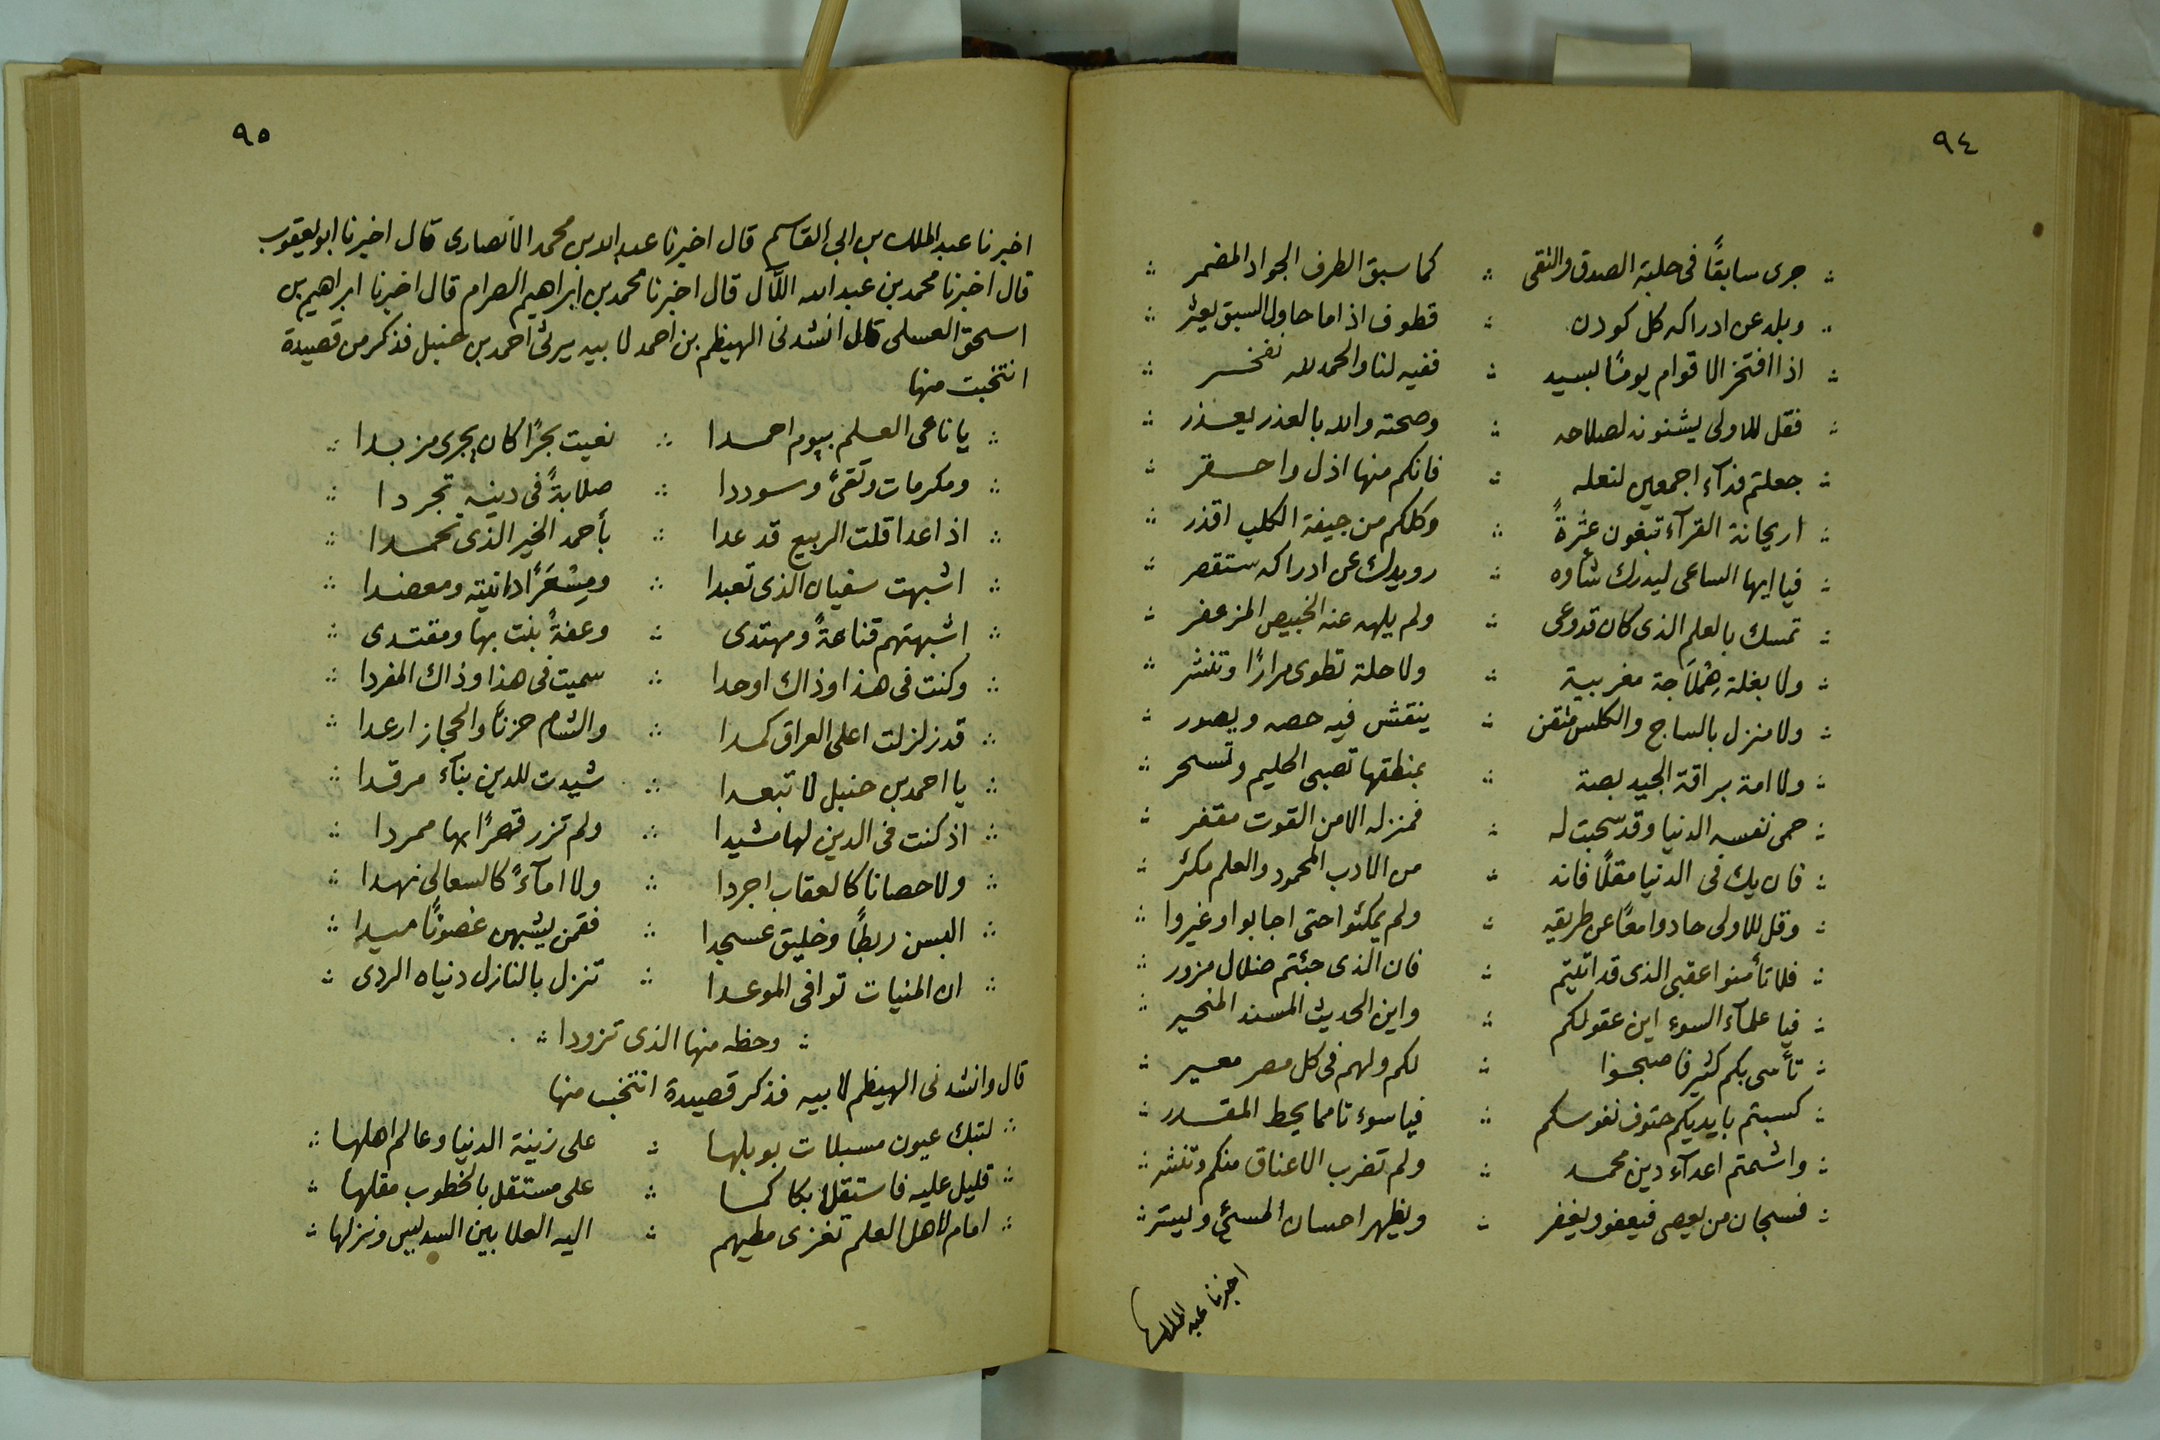 ٩٤
جرى سابقًا في حلبة الصدق والتقى ∴ كما سبق الطرف الجواد المضمر
وبلد عن ادراكه كل كودن ∴ قطوف اذا ما حاول السبق يعثر
اذا افتخر الاقوام يومًا بسيد ∴ ففيه لنا والحمد لله نفخر
فقل للاولى يشنونه لصلاحه ∴ وصحته والله بالعذر يعذر
جعلتم فدآء اجمعين لنعله ∴ فانكم منها اذل واحقر
اريحانة القرآء تبغون عثرةً ∴ وكلكم من جيفة الكلب اقذر
فيا ايها الساعى ليدرك شأوه ∴ رويدك عن ادراكه ستقصر
تمسك بالعلم الذى كان قد وعى ∴ ولم يلهه عنه الخبيص المزعفر
ولا بغلة هِمْلَاجة مغربية ∴ ولا حلة تطوى مرارًا وتنشر
ولا منزل بالساج والكلس متقن ∴ ينقش فيه جصه ويصور
ولا امة براقة الجيد بضة ∴ بمنطقها تصبى الحليم وتسحر
حمى نفسه الدنيا وقد سنحت له ∴ فمنزله الا من القوت مقفر
فان يك في الدنيا مقلًا فانه ∴ من الادب المحمود والعلم مكثر
وقل للاولى حادوا معًا عن طريقه ∴ ولم يمكثوا حتى اجابوا وغيروا
فلا تأمنوا عقبى الذى قد اتيتم ∴ فان الذى جئتم ضلال مزور
فيا علمآء السوء اين عقولكم ∴ واين الحديث المسند المتخير
تأسى بكم كثير فاصبحوا ∴ لكم ولهم في كل مصر معير
كسبتم بايديكم حتوف نفوسكم ∴ فيا سوءتا مما يحط المقدر
واشمتم اعدآء دين محمد ∴ ولم تضرب الاعناق منكم وتنشر
فسبحان من يعصى فيعفو ويغفر ∴ ويظهر احسان المسئ ويستر
اخبرنا عبد الملك
٩٥
اخبرنا عبد الملك بن ابى القاسم قال اخبرنا عبد الله بن محمد الأنصارى قال اخبرنا ابو يعقوب
قال اخبرنا محمد بن عبد الله اللآل قال اخبرنا محمد بن ابراهيم الصرام قال اخبرنا ابراهيم بن
اسحق العسلى قال انشدنى الهيظم بن احمد لابيه يرثى احمد بن حنبل فذكر من قصيدة
انتخبت منها
يا ناعى العلم بيوم احمدا ∴ نعيت بحرًا كان يجرى مزبدا
ومكرمات وتقىً وسوددا ∴ صلابةً في دينه تجردا
اذا عدا قلت الربيع قد عدا ∴ بأحمد الخير الذى تحمدا
اشبهت سفيان الذى تعبدا ∴ ومِسْعَرًا دانيته ومعضدا
اشبهتهم قناعةً ومهتدى ∴ وعفةً بنت بها ومقتدى
وكنت في هذا وذاك اوحدا ∴ سميت في هذا وذاك المفردا
قد زلزلت اعلى العراق كمدا ∴ والشام حزنًا والحجاز ارعدا
يا احمد بن حنبل لا تبعدا ∴ شيدت للدين بنآء مرقدا
اذ كنت في الدين لها مشيدا ∴ ولم تزر قصرًا بها ممردا
ولا حصانا كالعقاب اجردا ∴ ولا امآءً كالسعالى نهدا
البسن ريطًا وخليق عسجدا ∴ فقمن يشبهن غصونًا ميدا
ان المنيات توافى الموعدا ∴ تنزل بالنازل دنياه الردى
∴ وحظه منها الذى تزودا ∴
قال وانشدنى الهيظم لابيه فذكر قصيدة انتخبت منها
لتبك عيون مسبلات بوبلها ∴ على زينة الدنيا وعالم اهلها
قليل عليه فاستقلا بكاكما ∴ على مستقل بالخطوب مقلها
امام لاهل العلم تغزى مطيهم ∴ اليه العلا بين السديس وبزلها